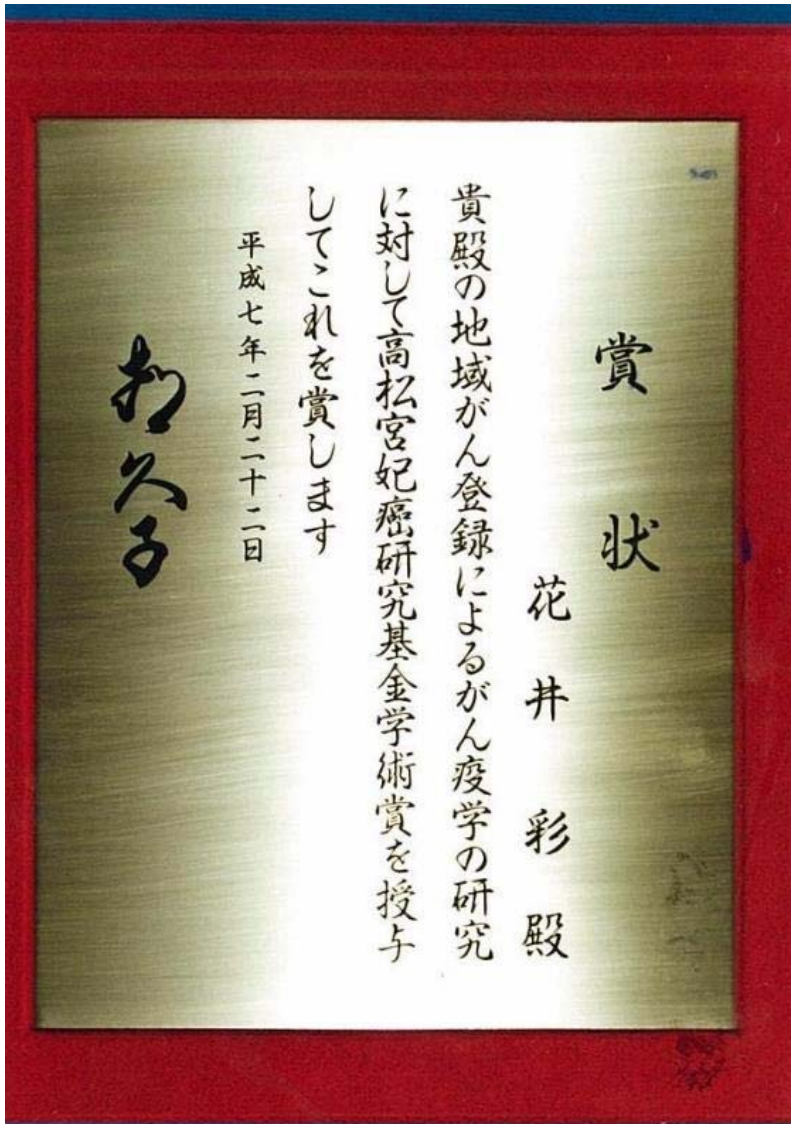 賞状
花井彩殿
貴殿の地域がん登録によるがん疫学の研究
に対して高松宮妃癌研究基金学術賞を授与
してこれを賞します
平成七年二月二十二日
喜久子